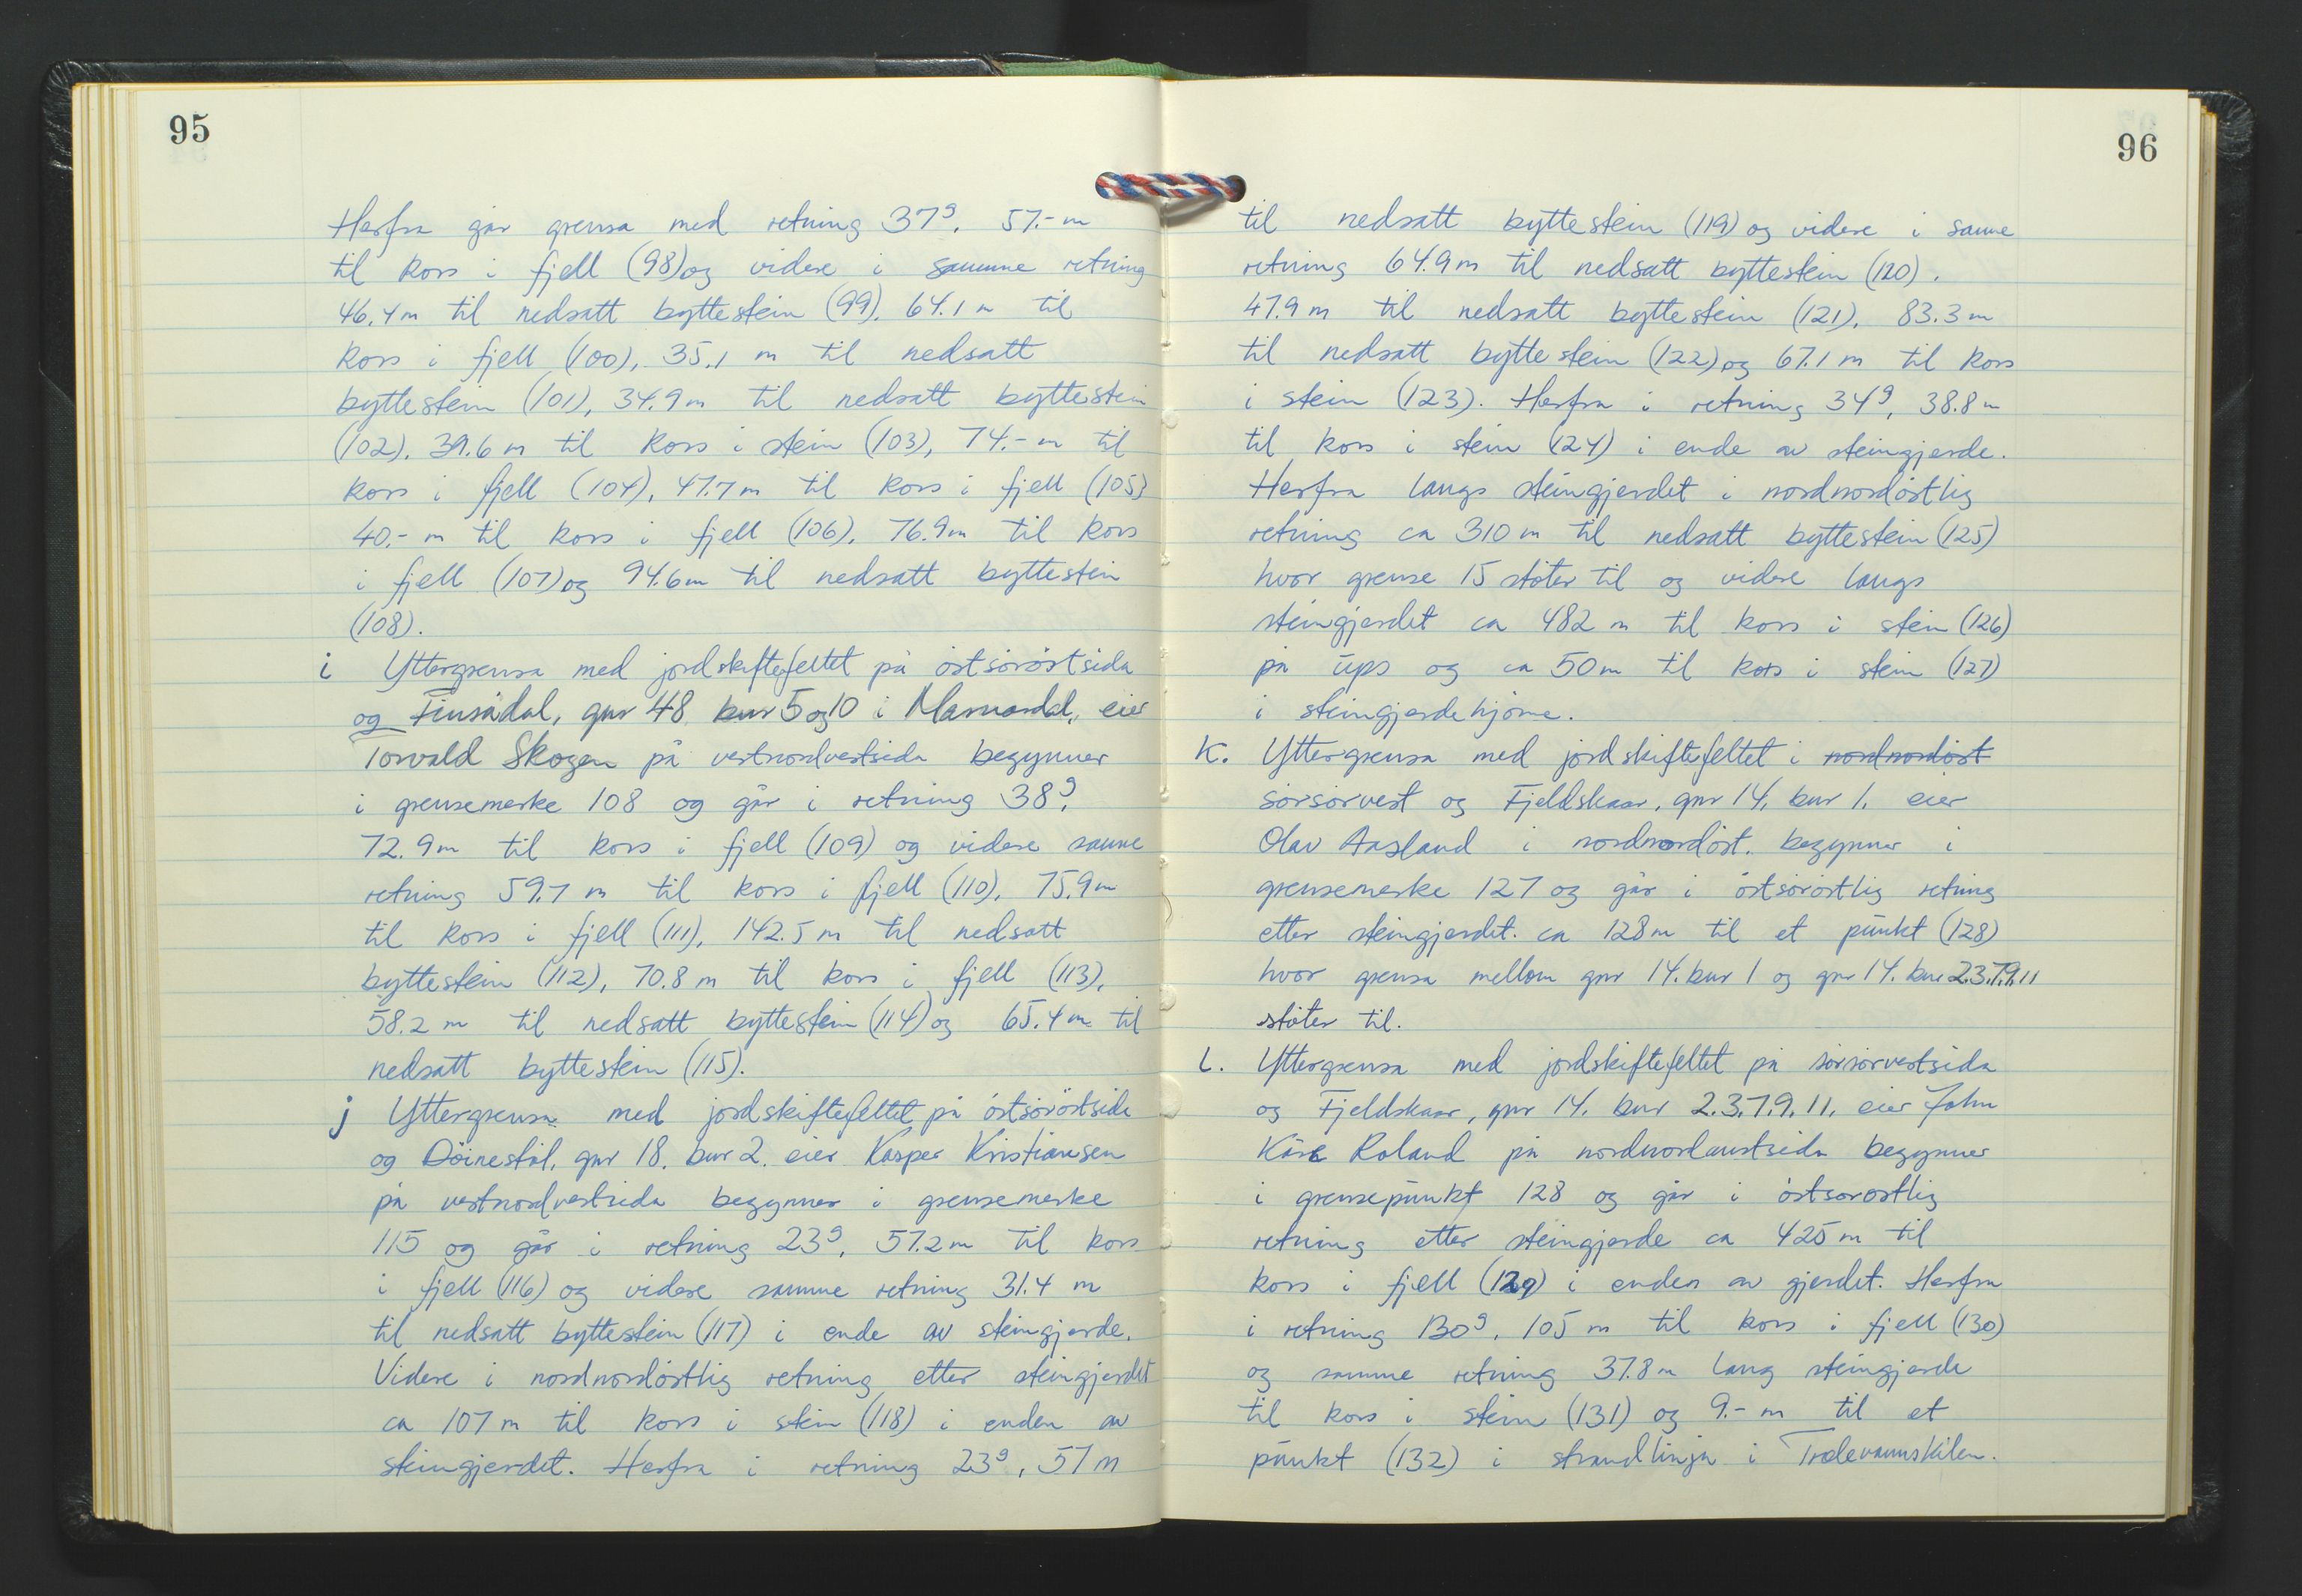 95
Herfra går grensa med retning 37g, 57.- m
til kors i fjell (98) og videre i samme retning
46.4 m til nedsatt byttestein (99), 64.1 m til
kors i fjell (100), 35.1 m til nedsatt
byttestein (101), 34.9 m til nedsatt byttestein
(102), 39.6 m til kors i stein (103), 74.- m til
kors i fjell (104), 47.7 m til kors i fjell (105)
40.- m til kors i fjell (106), 76.9 m til kors
i fjell (107) og 94.6 m til nedsatt byttestein
(108).
i Yttergrensa med jordskiftefeltet på östsöröstsida
og Finsådal, gnr 48 bnr 5 og 10 i Marnardal, eier
Torvald Skogen på vestnordvestsida begynner
i grensemerke 108 og går i retning 38g,
72.9 m til kors i fjell (109) og videre samme
retning 59.7 m til kors i fjell (110), 75.9 m
til kors i fjell (111), 142.5 m til nedsatt
byttestein (112), 70.8 m til kors i fjell (113),
58.2 m til nedsatt byttestein (114) og 65.4 m til
nedsatt byttestein (115).
j Yttergrensa med jordskiftefeltet på östsöröstside
og Döinestöl, gnr 18, bnr 2. eier Kasper Kristiansen
på vestnordvestsida begynner i grensemerke
115 og går i retning 23g, 57.2 m til kors
i fjell (116) og videre samme retning 31.4 m
til nedsatt byttestein (117) i ende av steingjerde.
Videre i nordnordöstlig retning etter steingjerdet
ca 107 m til kors i stein (118) i enden av
steingjerdet. Herfra i retning 23g, 57 m
96
til nedsatt byttestein (119) og videre i samme
retning 64.9 m til nedsatt byttestein (120),
47.9 m til nedsatt byttestein (121), 83.3 m
til nedsatt byttestein (122) og 67.1 m til kors
i stein (123). Herfra i retning 34g, 38.8 m
til kors i stein (124) i ende av steingjerde.
Herfra langs steingjerdet i nordnordöstlig
retning ca 310 m til nedsatt byttestein (125)
hvor grense 15 stöter til og videre langs
steingjerdet ca 482 m til kors i stein (126)
på ups og ca 50 m til kors i stein (127)
i steingjerdehjörne.
K. Yttergrensa med jordskiftefeltet i nordnordöst
sörsörvest og Fjeldskaar, gnr 14, bnr 1. eier
Olav Aasland i nordnordöst, begynner i
grensemerke 127 og går i östsöröstlig retning
etter steingjerdet ca 128 m til et punkt (128)
hvor grensa mellom gnr 14. bnr 1 og gnr 14. bnr 2.3.7.9.11
stöter til.
L. Yttergrensa med jordskiftefeltet på sörsörvestsida
og Fjeldskaar, gnr 14. bnr 2.3.7.9.11, eier John
Kåre Roland på nordnordaustsida begynner
i grensepunkt 128 og går i östsöröstlig
retning etter steingjerde ca 425 m til
kors i fjell (129) i enden av gjerdet. Herfra
i retning 130g, 105 m til kors i fjell (130)
og samme retning 37.8 m lang steingjerde
til kors i stein (131) og 9.- m til et
punkt (132) i strandlinja i Trolevannskilen.